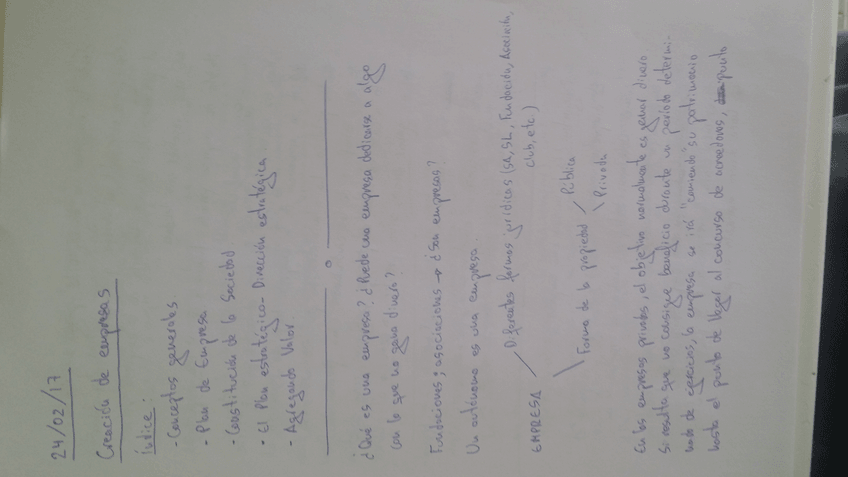 24/02/17
Creación de empresas
Índice:
- Conceptos generales
- Plan de Empresa
- Constitución de la Sociedad
- El Plan estratégico - Dirección estratégica
- Agregando Valor
¿Qué es una empresa? ¿Puede una empresa dedicarse a algo
con lo que no gana dinero?
Fundaciones; asociaciones → ¿Son empresas?
Un autónomo es una empresa.
EMPRESA
Diferentes formas jurídicas (SA, SL, Fundación, Asociación,
club, etc.)
Forma de la propiedad
Pública
Privada
En las empresas privadas, el objetivo normalmente es ganar dinero
Si resulta que no consigue beneficio durante un período determi-
nado de ejercicios, la empresa se irá "comiendo" su patrimonio
hasta el punto de llegar al concurso de acreedores, punto